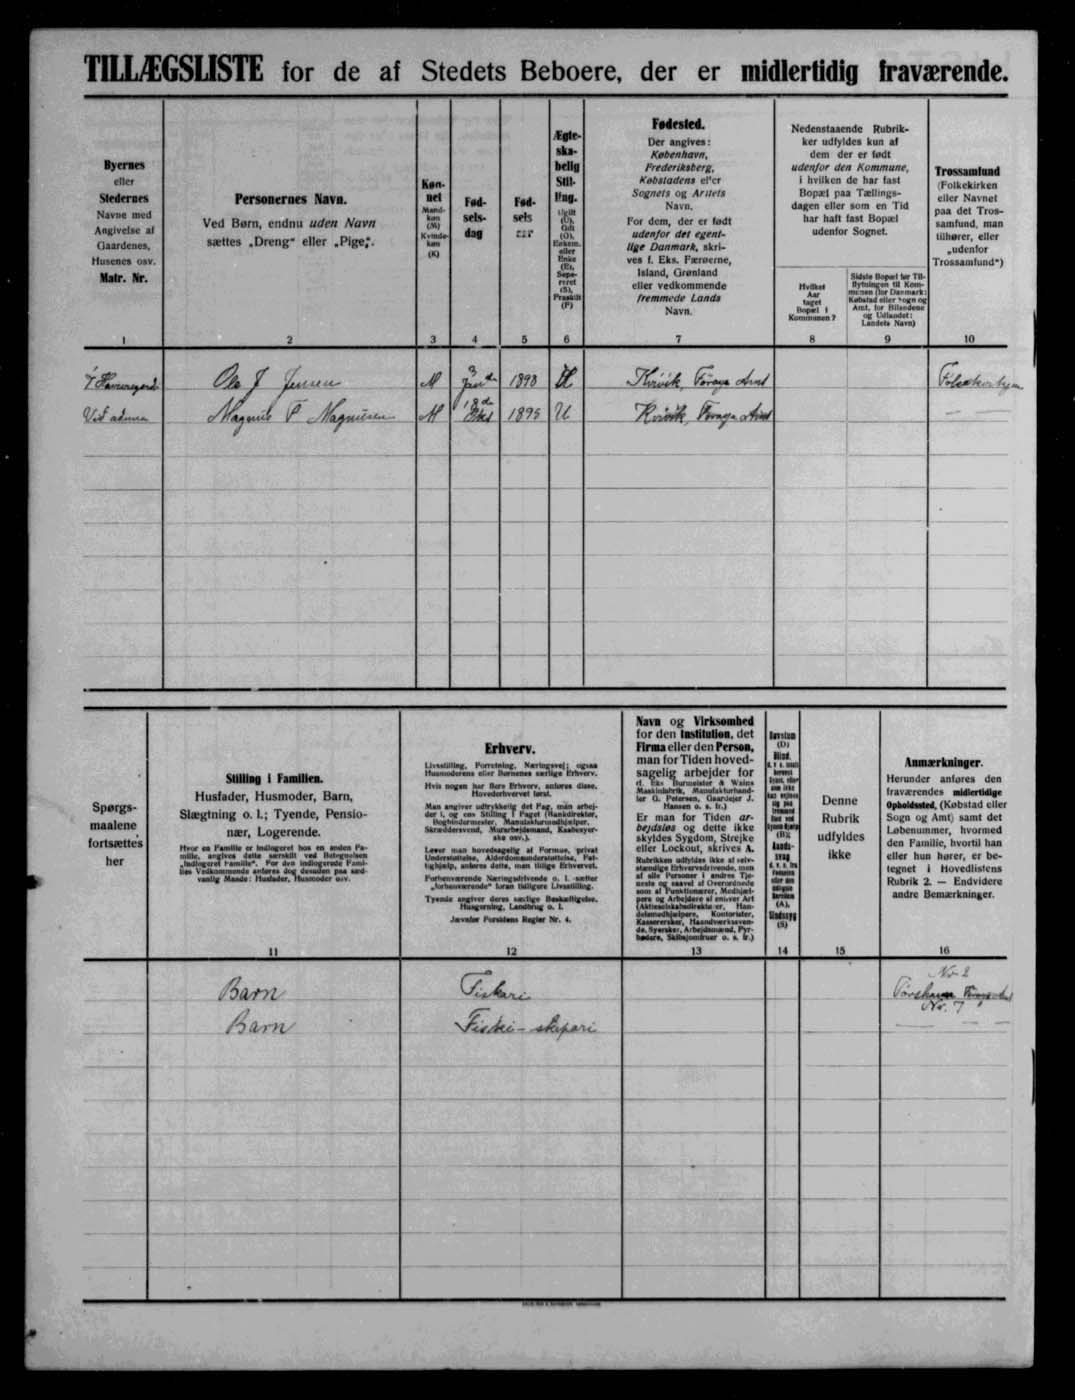 TILLÆGSLISTE for de af Stedets Beboere, der er midlertidig fraværende.
Byernes
eller
Stedernes
Navne med
Angivelse af
Gaardenes,
Husenes osv.
Matr. Nr.
1
Personernes Navn.
Ved Børn, endnu uden Navn
sættes „Dreng“ eller „Pige“.
2
Køn-
net
Mand-
køn
(M)
Kvinde-
køn
(K)
3
Fød-
sels-
dag
4
Fød-
sels
aar
5
Ægte-
ska-
belig
Stil-
ling.
Ugift
(U),
Gift
(G),
Enkem.
eller
Enke
(E),
Sepa-
reret
(S),
Fraskilt
(F)
6
Fødested.
Der angives:
København,
Frederiksberg,
Købstadens eller
Sognets og Amtets
Navn.
For dem, der er født
udenfor det egent-
lige Danmark, skri-
ves f. Eks. Færøerne,
Island, Grønland
eller vedkommende
fremmede Lands
Navn.
7
Nedenstaaende Rubrik-
ker udfyldes kun af
dem der er født
udenfor den Kommune,
i hvilken de har fast
Bopæl paa Tællings-
dagen eller som en Tid
har haft fast Bopæl
udenfor Sognet.
Hvilket
Aar
taget
Bopæl i
Kommunen?
8
Sidste Bopæl før Til-
flytningen til Kom-
munen (for Danmark:
Købstad eller Sogn og
Amt, for Bilandene
og Udlandet:
Landets Navn)
9
Trossamfund
(Folkekirken
eller Navnet
paa det Tros-
samfund, man
tilhører, eller
„udenfor
Trossamfund“)
10
Ole J Jensen M 3 1898 U Kvivik, Føroya Amt
Magnus P Magnusen M 18de 1895 U Kvivik, Føroya Amt — — —
Spørgs-
maalene
fortsættes
her
Stilling i Familien.
Husfader, Husmoder, Barn,
Slægtning o. l.; Tyende, Pensio-
nær, Logerende.
Hvor en Familie er indlogeret hos en anden Fa-
milie, angives dette særskilt ved Betegnelsen
„indlogeret Familie“. For den indlogerede Fami-
lies Vedkommende anføres dog desuden paa sæd-
vanlig Maade: Husfader, Husmoder osv.
11
Erhverv.
Livsstilling, Forretning, Næringsvej; ogsaa
Husmoderens eller Børnenes særlige Erhverv.
Hvis nogen har flere Erhverv, anføres disse,
Hovederhvervet først.
Man angiver udtrykkelig det Fag, man arbej-
der i, og ens Stilling i Faget (Bankdirektør,
Bogbindermester, Manufakturmedhjælper,
Skræddersvend, Murarbejdsmand, Kaabesyer-
ske osv.).
Lever man hovedsagelig af Formue, privat
Understøttelse, Alderdomsunderstøttelse, Fat-
tighjælp, anføres dette, man tillige Erhvervet.
Forhenværende Næringsdrivende o. l. sætter
„forhenværende“ foran tidligere Livsstilling.
Tyende angiver deres særlige Beskæftigelse,
Husgerning, Landbrug o. l.
Jævnfør Forsidens Regler Nr. 4.
12
Navn og Virksomhed
for den Institution, det
Firma eller den Person,
man for Tiden hoved-
sagelig arbejder for
(f. Eks Burmeister & Wains
Maskinfabrik, Manufakturhand-
ler G. Petersen, Gaardejer J.
Hansen o. s. fr.)
Er man for Tiden ar-
bejdsløs og dette ikke
skyldes Sygdom, Strejke
eller Lockout, skrives A.
Rubrikken udfyldes ikke af selv-
stændige Erhvervsdrivende, men
af alle Personer i andres Tje-
neste og saavel af Overordnede
som af Funktionærer, Medhjæl-
pere og Arbejdere af enhver Art
(Aktieselskabsdirektører, Han-
delsmedhjælpere, Kontorister,
Kasserersker, Haandværkssven-
de, Syersker, Arbejdsmænd, Fyr-
bødere, Skibsjomfruer o. s. fr.)
13
Døvstum
(D)
Blind,
(B);
Aands-
svag
(A),
Sindssyg
(S)
14
Denne
Rubrik
udfyldes
ikke
15
Anmærkninger.
Herunder anføres den
fraværendes midlertidige
Opholdssted, (Købstad eller
Sogn og Amt) samt det
Løbenummer, hvormed
den Familie, hvortil han
eller hun hører, er be-
tegnet i Hovedlistens
Rubrik 2. — Endvidere
andre Bemærkninger.
16
No 2
Barn Fiskari Tórshavn Føroya Amt
No. 7
Barn — skipari — — —